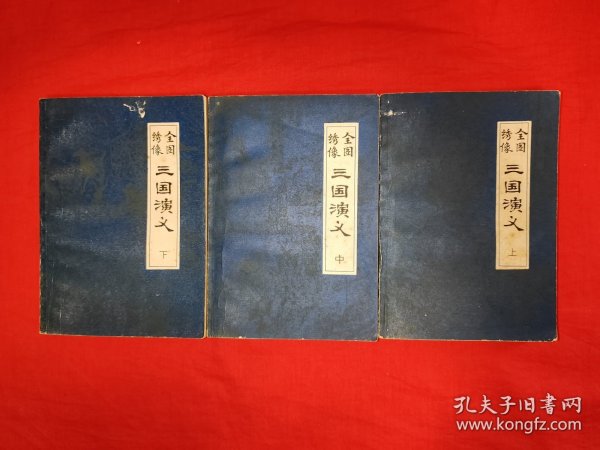 全图绣像
三国演义
下
全图绣像
三国演义
中
全图绣像
三国演义
上
孔夫子旧书网
www.kongfz.com